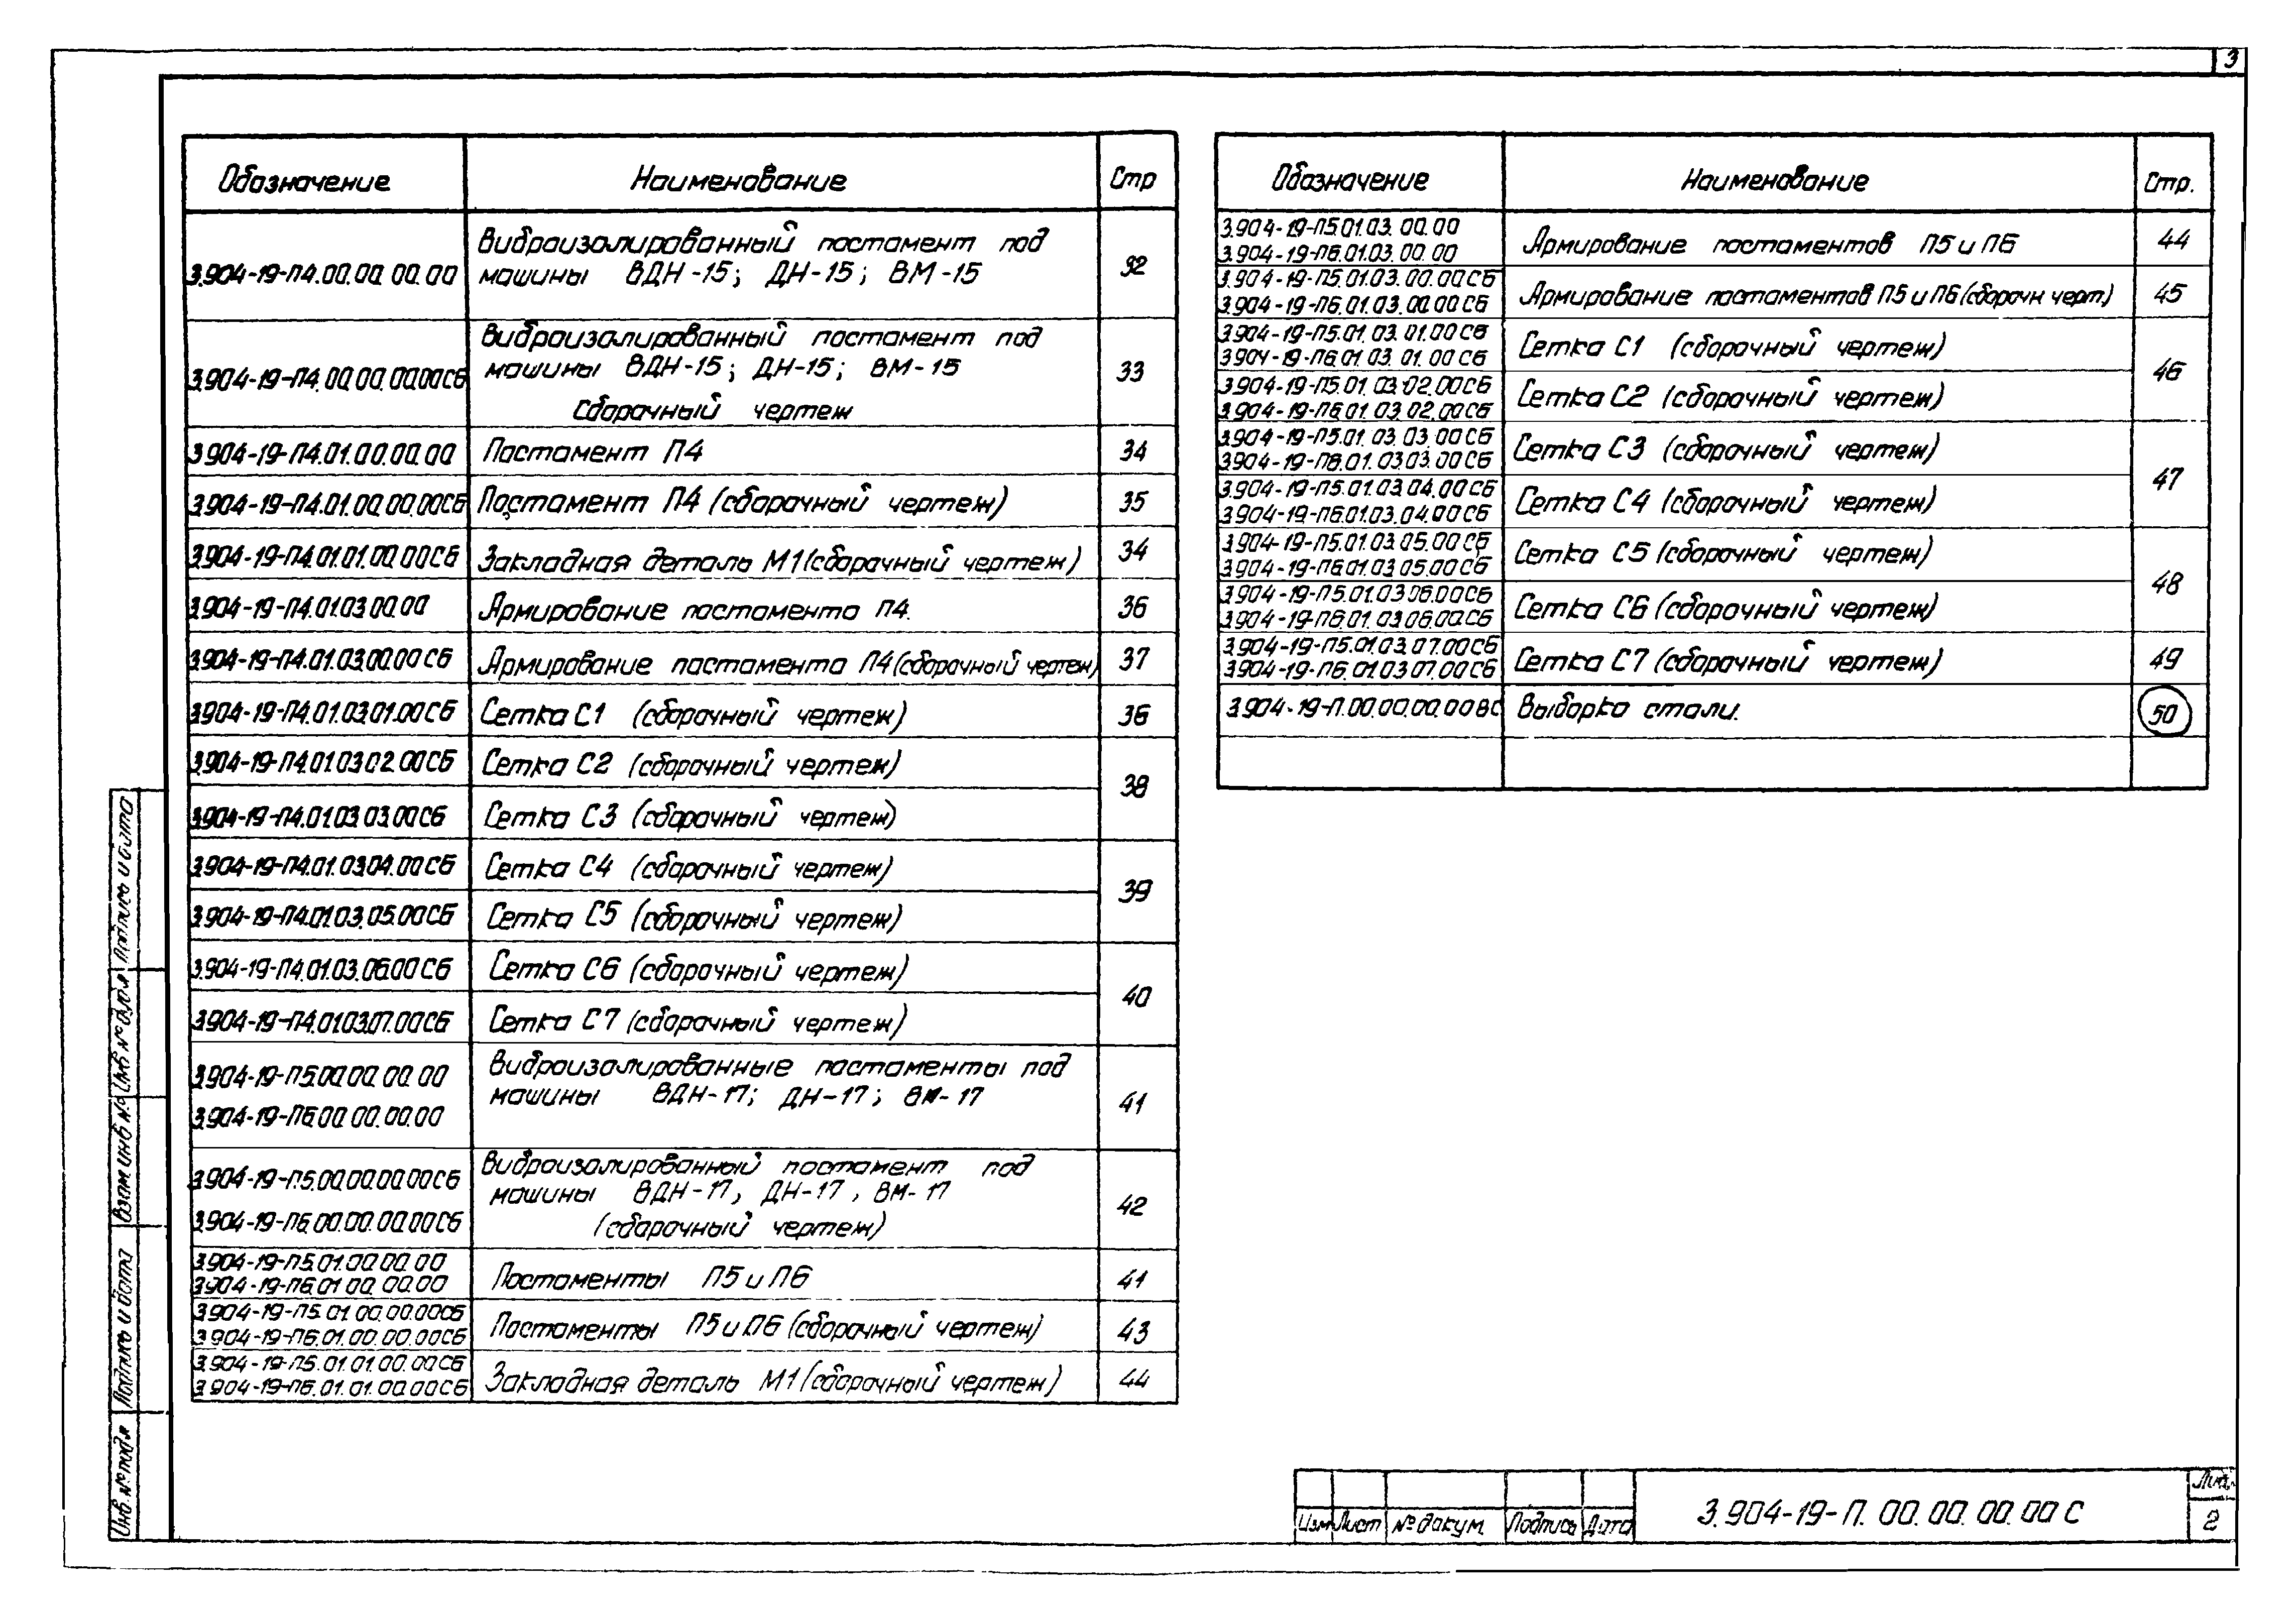 3
Обозначение Наименование Стр
3.904-19-П4.00.00.00.00 Виброизолированный постамент под
машины ВДН-15; ДН-15; ВМ-15 32
3.904-19-П4.00.00.00.00СБ Виброизолированный постамент под
машины ВДН-15; ДН-15; ВМ-15 33
Сборочный чертеж
3.904-19-П4.01.00.00.00 Постамент П4 34
3.904-19-П4.01.00.00.00СБ Постамент П4 (сборочный чертеж) 35
3.904-19-П4.01.01.00.00СБ Закладная деталь М1 (сборочный чертеж) 34
3.904-19-П4.01.03.00.00 Армирование постамента П4. 36
3.904-19-П4.01.03.00.00СБ Армирование постамента П4 (сборочный чертеж) 37
3.904-19-П4.01.03.01.00СБ Сетка С1 (сборочный чертеж) 36
3.904-19-П4.01.03.02.00СБ Сетка С2 (сборочный чертеж) 38
3.904-19-П4.01.03.03.00СБ Сетка С3 (сборочный чертеж)
3.904-19-П4.01.03.04.00СБ Сетка С4 (сборочный чертеж) 39
3.904-19-П4.01.03.05.00СБ Сетка С5 (сборочный чертеж)
3.904-19-П4.01.03.06.00СБ Сетка С6 (сборочный чертеж) 40
3.904-19-П4.01.03.07.00СБ Сетка С7 (сборочный чертеж)
3.904-19-П5.00.00.00.00 Виброизолированные постаменты под
машины ВДН-17; ДН-17; ВМ-17 41
3.904-19-П6.00.00.00.00
3.904-19-П5.00.00.00.00СБ Виброизолированный постамент под
машины ВДН-17, ДН-17, ВМ-17 42
3.904-19-П6.00.00.00.00СБ (сборочный чертеж)
3.904-19-П5.01.00.00.00
3.904-19-П6.01.00.00.00 Постаменты П5 и П6 41
3.904-19-П5.01.00.00.00СБ
3.904-19-П6.01.00.00.00СБ Постаменты П5 и П6 (сборочный чертеж) 43
3.904-19-П5.01.01.00.00СБ
3.904-19-П6.01.01.00.00СБ Закладная деталь М1 (сборочный чертеж) 44
Обозначение Наименование Стр.
3.904-19-П5.01.03.00.00
3.904-19-П6.01.03.00.00 Армирование постаментов П5 и П6 44
3.904-19-П5.01.03.00.00СБ
3.904-19-П6.01.03.00.00СБ Армирование постаментов П5 и П6 (сборочн черт.) 45
3.904-19-П5.01.03.01.00СБ
3.904-19-П6.01.03.01.00СБ Сетка С1 (сборочный чертеж) 46
3.904-19-П5.01.03.02.00СБ
3.904-19-П6.01.03.02.00СБ Сетка С2 (сборочный чертеж)
3.904-19-П5.01.03.03.00СБ
3.904-19-П6.01.03.03.00СБ Сетка С3 (сборочный чертеж) 47
3.904-19-П5.01.03.04.00СБ
3.904-19-П6.01.03.04.00СБ Сетка С4 (сборочный чертеж)
3.904-19-П5.01.03.05.00СБ
3.904-19-П6.01.03.05.00СБ Сетка С5 (сборочный чертеж) 48
3.904-19-П5.01.03.06.00СБ
3.904-19-П6.01.03.06.00СБ Сетка С6 (сборочный чертеж)
3.904-19-П5.01.03.07.00СБ
3.904-19-П6.01.03.07.00СБ Сетка С7 (сборочный чертеж) 49
3.904-19-П.00.00.00.00ВС Выборка стали. 50
Инв. № подл Подпись и дата Взам инв № Инв № дубл Подпись и дата
Изм Лист № докум. Подпись Дата
3.904-19-П.00.00.00.00 С
Лист
2